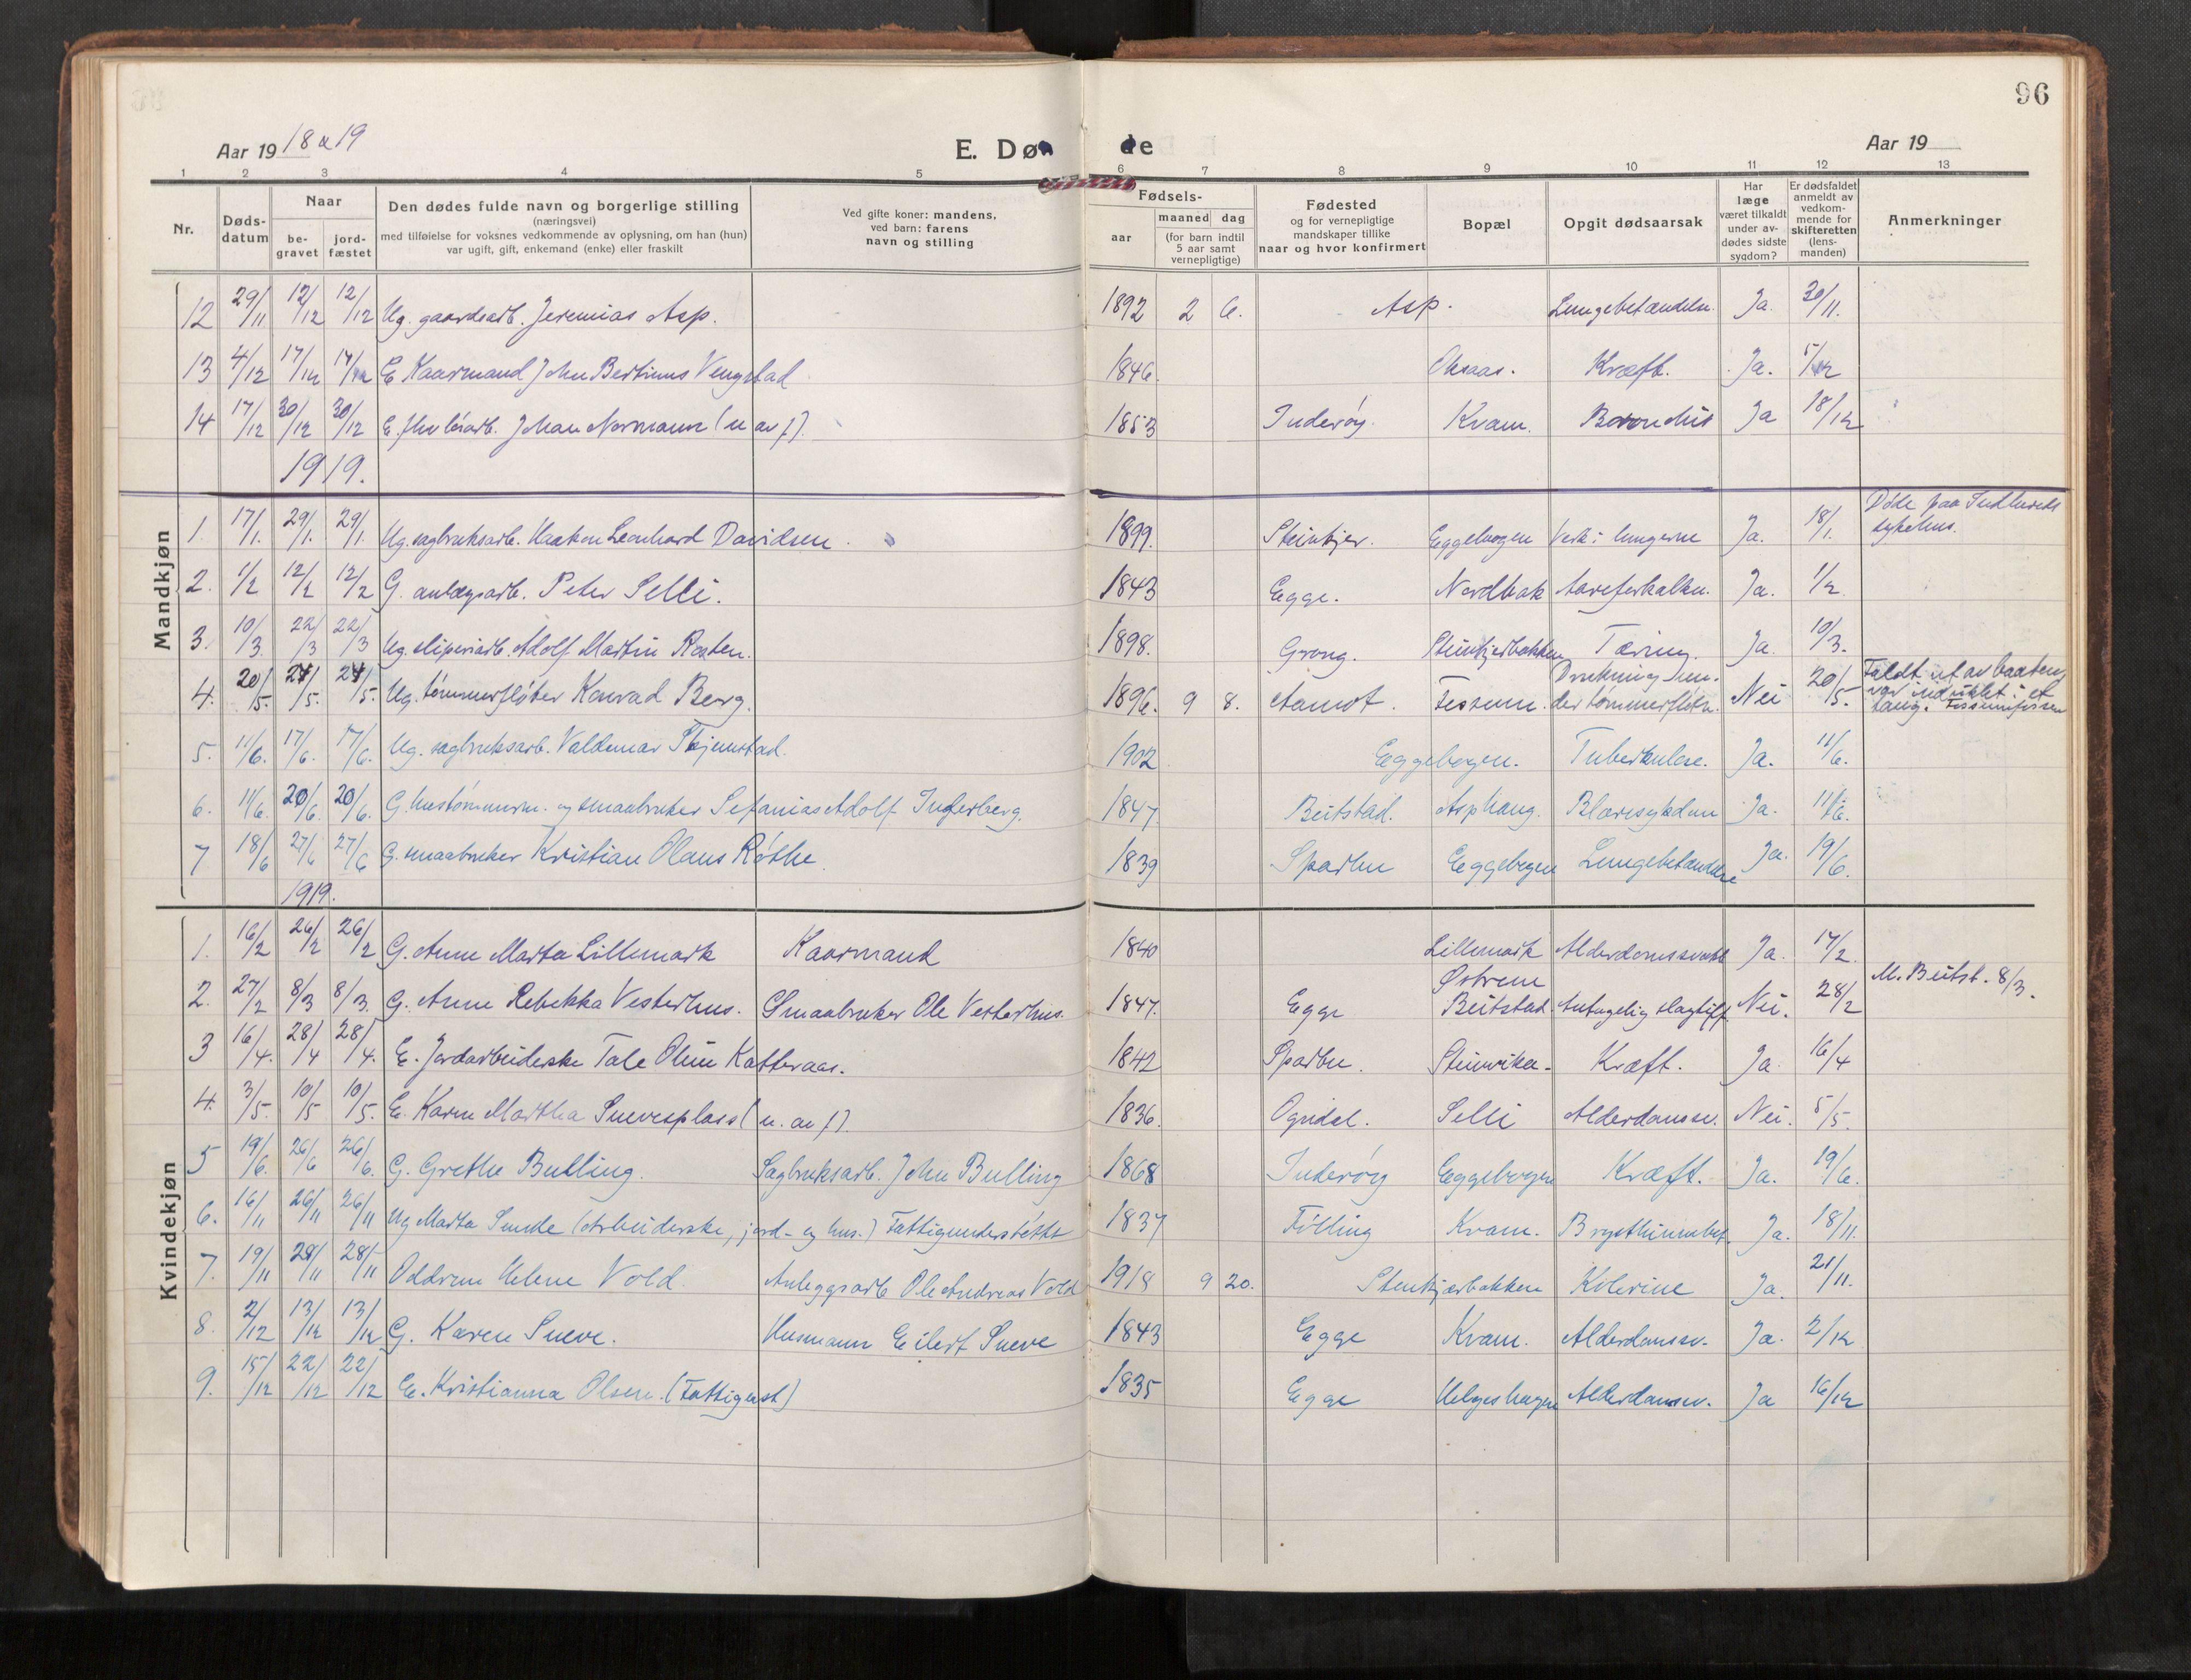 96
Aar 19 18 & 19 E. Dø de Aar 19
1 2 3 4 5 6 7 8 9 10 11 12 13
Nr. Døds-datum Naar be-gravet jord-fæstet Den dødes fulde navn og borgerlige stilling (næringsvei) med tilføielse for voksnes vedkommende av oplysning, om han (hun) var ugift, gift, enkemand (enke) eller fraskilt Ved gifte koner: mandens, ved barn: farens navn og stilling Fødsels- aar maaned dag (for barn indtil 5 aar samt vernepligtige) Fødested og for vernepligtige mandskaper tillike naar og hvor konfirmert Bopæl Opgit dødsaarsak Har læge været tilkaldt under av-dødes sidste sygdom? Er dødsfaldet anmeldt av vedkom-mende for skifteretten (lens-manden) Anmerkninger
Mandkjøn
12 29/11 12/12 12/12 Ug. gaardsarb. Jeremias Asp. 1892 2 6. Asp. Lungebetændelse. Ja. 30/11.
13 4/12 17/12 17/12 E Kaarmand John Bertinus Vengstad 1846. Oksaas. Kræft. Ja. 5/12
14 17/12 30/12 30/12 E. Johan Normann (u av f). 1853 Inderøy. Kvam. Bronchis Ja 18/12
1919.
1. 17/1. 29/1. 29/1. Ug. sagbruksarb. Haakon Leonhard Davidsen. 1899. Steinkjer. Eggebogen Verk i lungerne Ja. 18/1. Døde paa Indherreds sykehus.
2. 1/2 12/2 12/2 G. anlægsarb. Peter Selli. 1843 Egge. Nordbak Aareforkalkn. Ja. 1/2
3. 10/3 22/3 22/3 Ug. sliperiarb. Adolf Martin Rosten. 1898. Grong. Steinkjerbakken Tæring. Ja. 10/3.
4. 20/5. 24/5. 24/5. Ug. tømmerfløter Konrad Berg. 1896. 9 8. Aamot. Fossum. Drukning un-der tømmerfløtn. Nei 20/5. Faldt ut av baaten, var indviklet i et taug. Fossumfossen
5. 11/6. 17/6. 17/6. Ug. sagbruksarb. Valdemar Skjemstad. 1902 Eggebogen. Tuberkulose. Ja. 11/6.
6. 11/6. 20/6. 20/6. G. hustømmerm. og smaabruker Sefanias Adolf Inderberg. 1847 Beitstad. Asphaug. Blæresykdom Ja. 11/6.
7 18/6 27/6 27/6 G. smaabruker Kristian Olaus Røthe. 1839 Sparbu Eggebogen Lungebetændelse Ja. 19/6.
1919.
Kvindekjøn
1. 16/2 26/2 26/2 G. Anne Marta Lillemark Kaarmand 1840 Lillemark Alderdomssvakh. Ja. 17/2.
2. 27/2 8/3 8/3. G. Anne Rebekka Vesterhus. Smaabruker Ole Vesterhus. 1847. Egge Østrem Beitstad Antagelig slagtilf. Nei. 28/2 M. Beitst. 8/3.
3 16/4. 28/4 28/4. E. Jordarbeiderske Tale Oline Katteraas. 1842 Sparbu. Steinvika. Kræft. Ja. 16/4
4. 3/5. 10/5 10/5. E. Karen Martha Snevesplass (u. av f). 1836. Ogndal. Selli Alderdomssv. Nei. 5/5.
5 19/6. 26/6 26/6. G. Grethe Bulling. Sagbruksarb. John Bulling 1868 Inderøy Eggebogen Kræft. Ja. 19/6.
6. 16/11 26/11 26/11 Ug Marta Sneve (Arbeiderske, jord- og hus.) Fattigunderstøttet 1837 Følling Kvam. Brysthinnebet. Ja. 18/11.
7. 19/11 28/11 28/11 Oddrun Helene Vold. Anleggsarb. Ole Andreas Vold 1918 9 20. Stenkjærbakken Kolerine Ja. 21/11.
8. 2/12 13/12 13/12 G. Karen Sneve. Husmann Eilert Sneve 1843 Egge Kvam. Alderdomssv. Ja. 2/12
9. 15/12 22/12 22/12 E. Kristianna Olsen. (Fattigust) 1835 Egge Helgeshaugen Alderdomssv. Ja 16/12